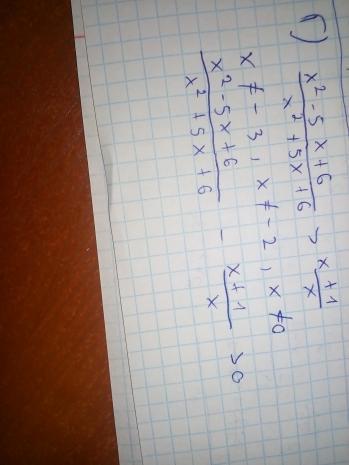 б) x² - 5x + 6 / x² + 5x + 6 > x + 1 / x
x ≠ - 3, x ≠ - 2, x ≠ 0
x² - 5x + 6 / x² + 5x + 6 - x + 1 / x > 0